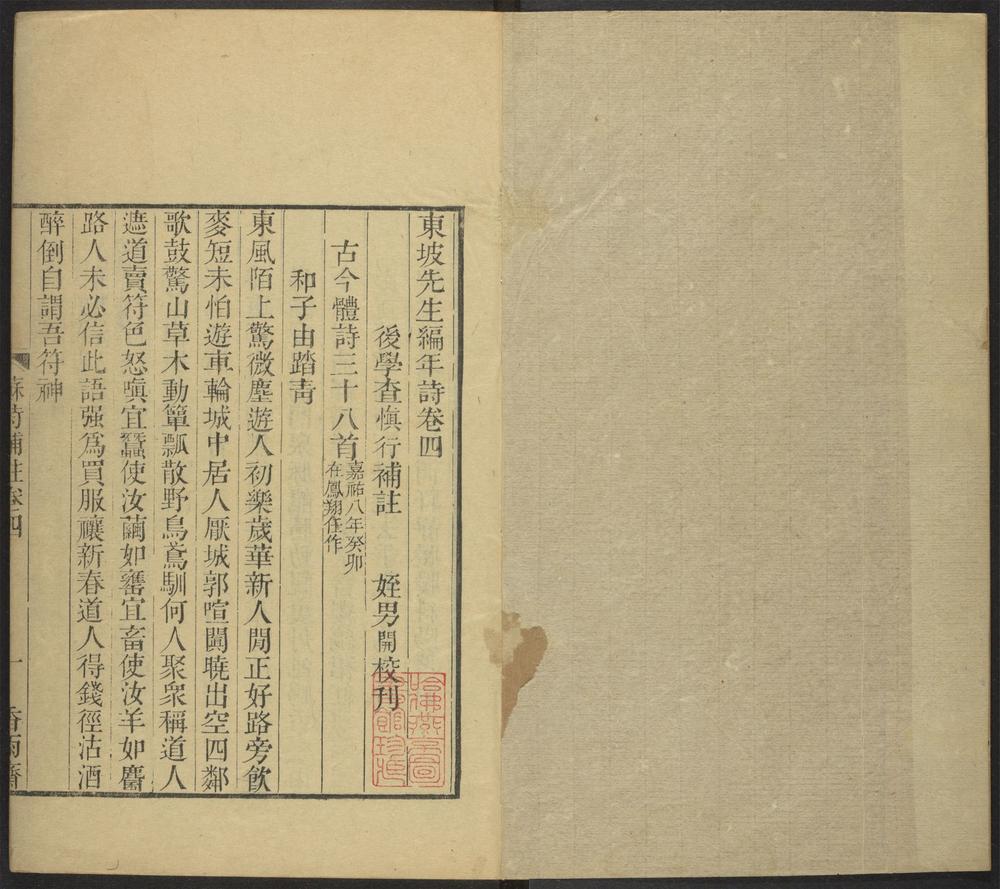 東坡先生編年詩卷四
後學查慎行補註　姪男開校刊
古今體詩三十八首嘉祐八年癸卯在鳳翔任作
和子由踏靑
東風陌上驚微塵遊人初樂歲華新人閒正好路旁飲
麥短未怕遊車輪城中居人厭城郭喧闐曉出空四鄰
歌鼓驚山草木動簞瓢散野烏鳶馴何人聚衆稱道人
遮道賣符色怒嗔宜蠶使汝繭如甕宜畜使汝羊如麕
路人未必信此語强爲買服禳新春道人得錢徑沽酒
醉倒自謂吾符神
蘇詩補註卷四　一　香雨齋
哈佛燕京圖書館珍藏